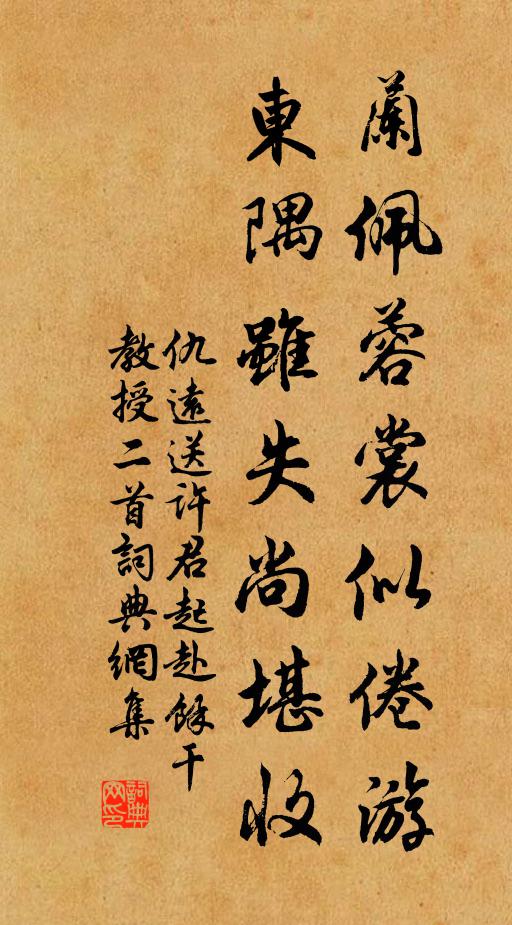 蘭佩蓉裳似倦游
東隅雖失尚堪收
仇遠送許君起赴餘干
教授二首詞典網集
詞典網印